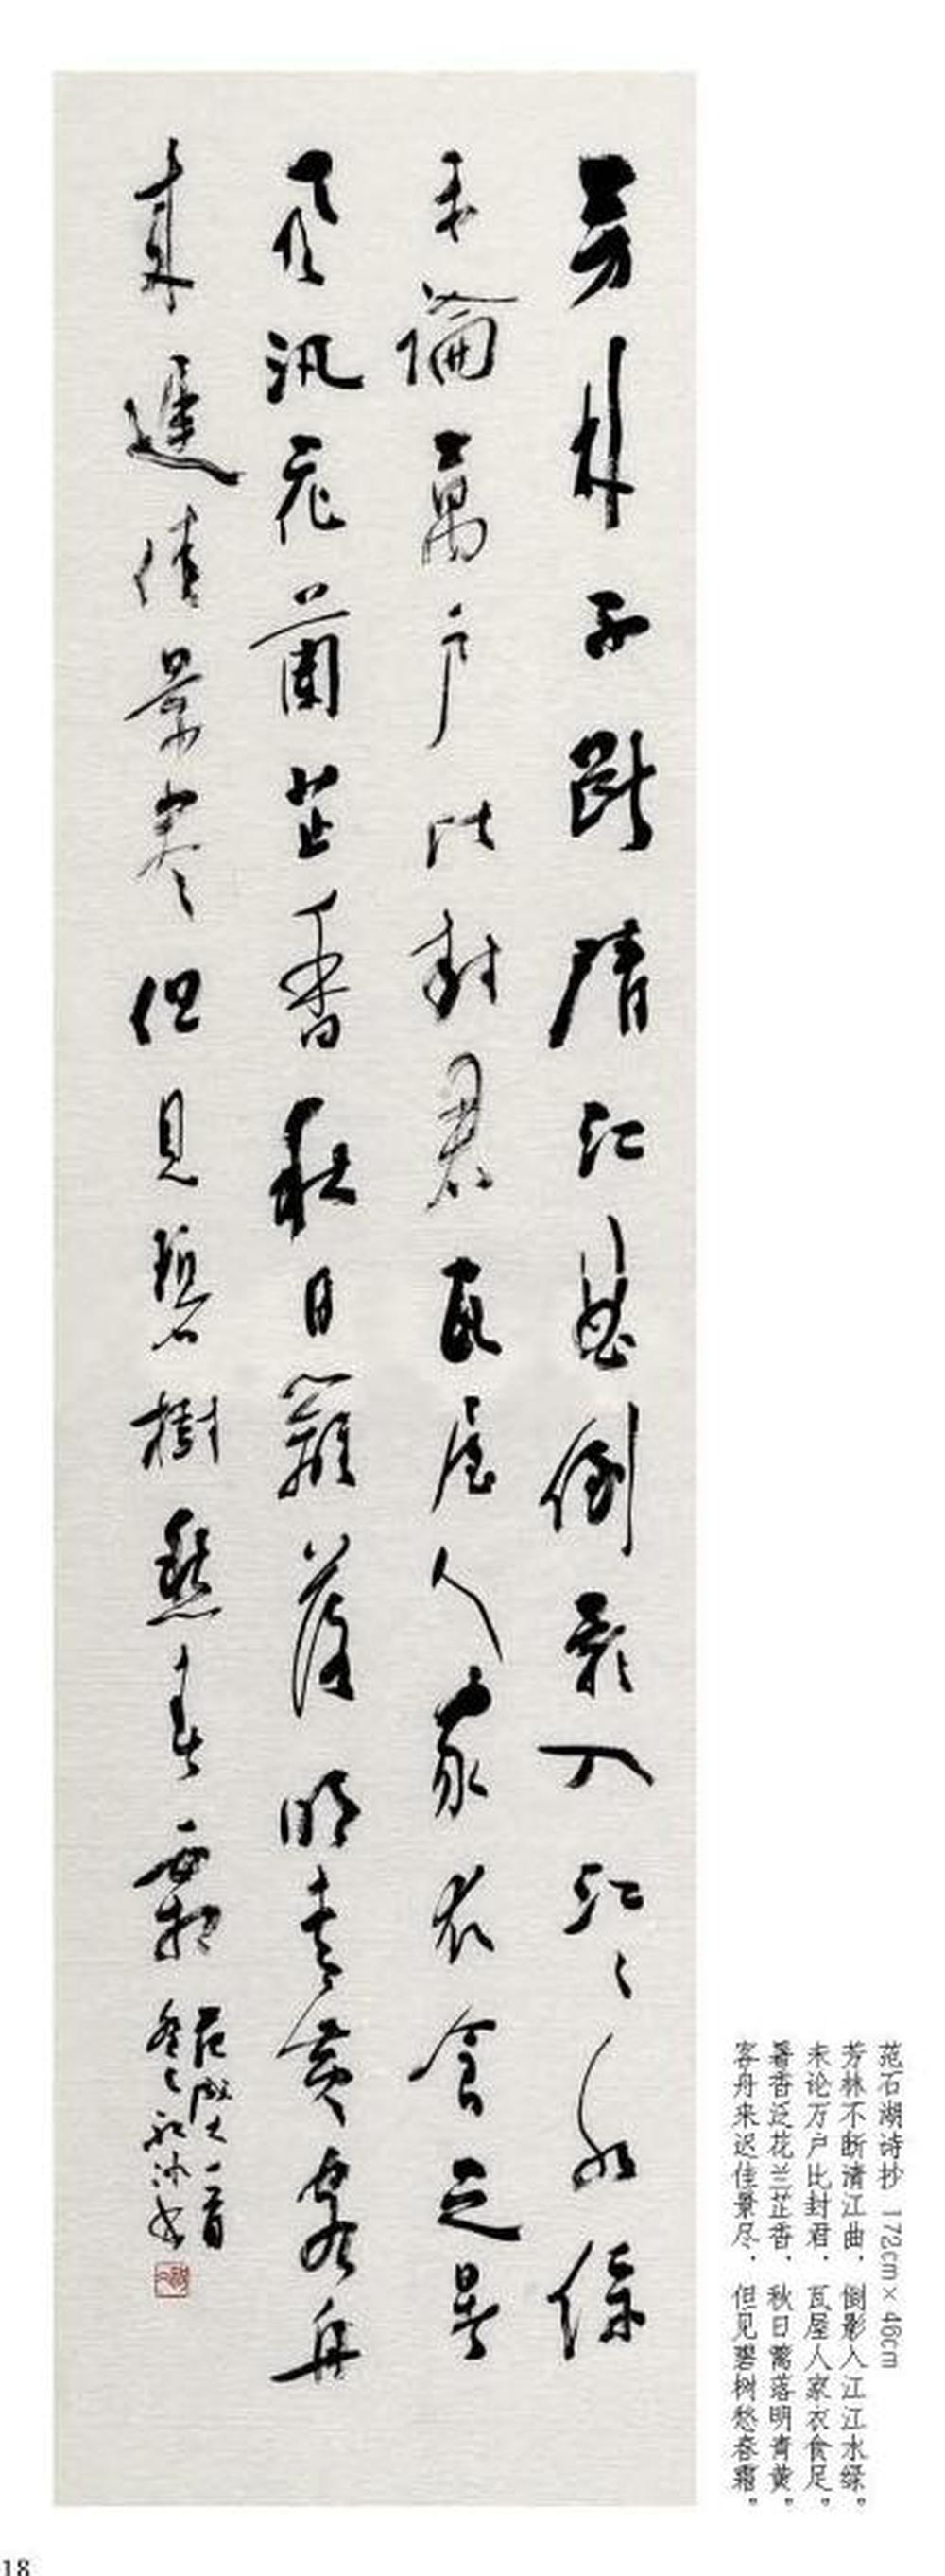 芳林不斷清江曲倒影入江〻水綠
未論萬戶比封君瓦屋人家衣食足暑
風汎花蘭芷香秋日籬落明青黃客舟
来遲佳景盡但見碧樹愁春霜
范成大一首
范石湖诗抄 172cm×46cm
芳林不断清江曲，倒影入江江水绿。
未论万户比封君，瓦屋人家衣食足。
暑香泛花兰芷香，秋日篱落明青黄。
客舟来迟佳景尽，但见碧树愁春霜。
18